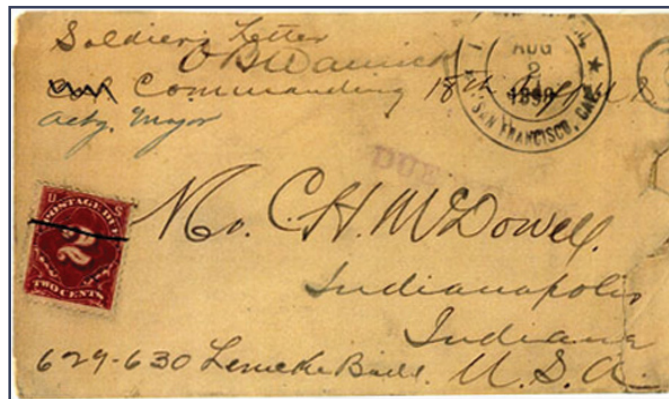 Soldiers Letter
Commanding 18th
Actg. Major
AUG
2
SAN FRANCISCO, CAL.
DUE
U S
POSTAGE DUE
2
TWO CENTS
C. H. McDowell.
Indianapolis
Indiana
629-630 Lemcke Bldg. U. S. A.